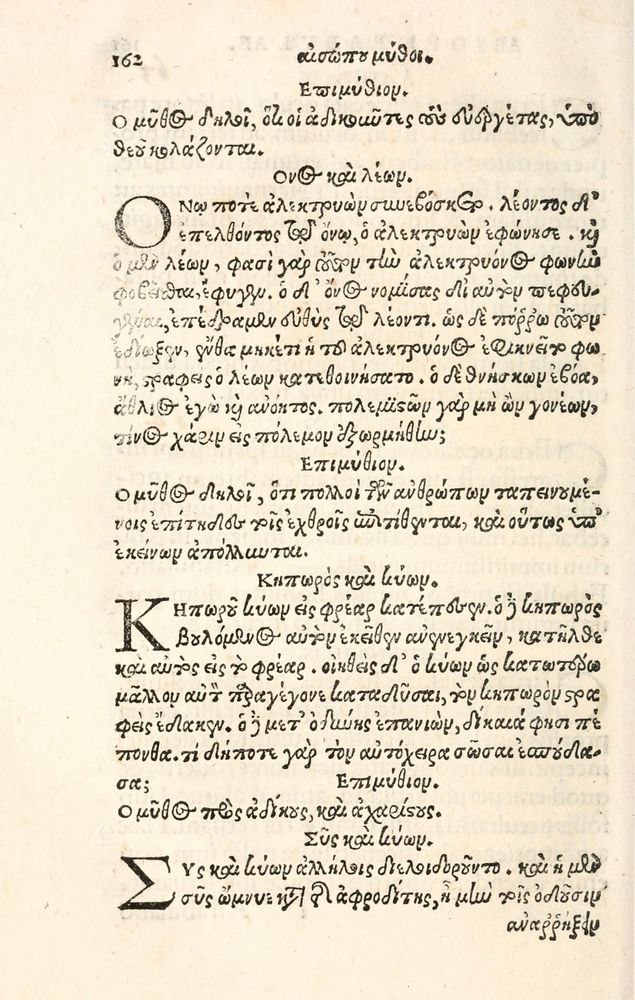 162 αἰσώπου μῦθοι.
Επιμύθιον.
Ο μῦθος δηλοῖ, ὅτι οἱ ἀδικοῦντες τοὺς εὐεργέτας, ὑπὸ
θεοῦ κολάζονται.
Ονος καὶ λέων.
ΟΝῳ ποτὲ ἀλεκτρυὼν συνεβόσκετο. λέοντος δ'
ἐπελθόντος τῷ ὄνῳ, ὁ ἀλεκτρυὼν ἐφώνησε. καὶ
ὁ μὲν λέων, φασὶ γὰρ τοῦτον τὴν ἀλεκτρυόνος φωνὴν
φοβεῖσθαι, ἔφυγεν. ὁ δ' ὄνος νομίσας δι' αὐτὸν πεφευ-
γέναι, ἐπέδραμεν εὐθὺς τῷ λέοντι. ὡς δὲ πόῤῥω τοῦτον
ἐδίωξεν, ἔνθα μηκέτι ἡ τοῦ ἀλεκτρυόνος ἐφικνεῖτο φω
νὴ, στραφεὶς ὁ λέων κατεθοινήσατο. ὁ δὲ θνήσκων ἐβόα,
ἄθλιος ἐγὼ καὶ ἀνόητος. πολεμιστῶν γὰρ μὴ ὢν γονέων,
τίνος χάριν εἰς πόλεμον ἐξωρμήθην;
Επιμύθιον.
Ο μῦθος δηλοῖ, ὅτι πολλοὶ τῶν ἀνθρώπων ταπεινουμέ-
νοις ἐπίτηδες τοῖς ἐχθροῖς ἐπιτίθενται, καὶ οὕτως ὑπ'
ἐκείνων ἀπόλλυνται.
Κηπωρὸς καὶ κύων.
ΚΗπωροῦ κύων εἰς φρέαρ κατέπεσεν. ὁ δὲ κηπωρὸς
βουλόμενος αὐτὸν ἐκεῖθεν ἀνενεγκεῖν, κατῆλθε
καὶ αὐτὸς εἰς τὸ φρέαρ. οἰηθεὶς δ' ὁ κύων ὡς κατωτέρω
μᾶλλον αὐτὸν παραγέγονε καταδῦσαι, τὸν κηπωρὸν στρα
φεὶς ἔδακεν. ὁ δὲ μετ' ὀδύνης ἐπανιὼν, δίκαιά φησι πέ
πονθα. τί δήποτε γὰρ τὸν αὐτόχειρα σῶσαι ἐσπούδα-
σα; Επιμύθιον.
Ο μῦθος πρὸς ἀδίκους, καὶ ἀχαρίστους.
Σῦς καὶ κύων.
ΣΥς καὶ κύων ἀλλήλαις διελοιδοροῦντο. καὶ ἡ μὲν
σῦς ὤμνυε κατὰ τῆς ἀφροδίτης, ἦ μὴν τοῖς ὀδοῦσιν
ἀναῤῥήξειν